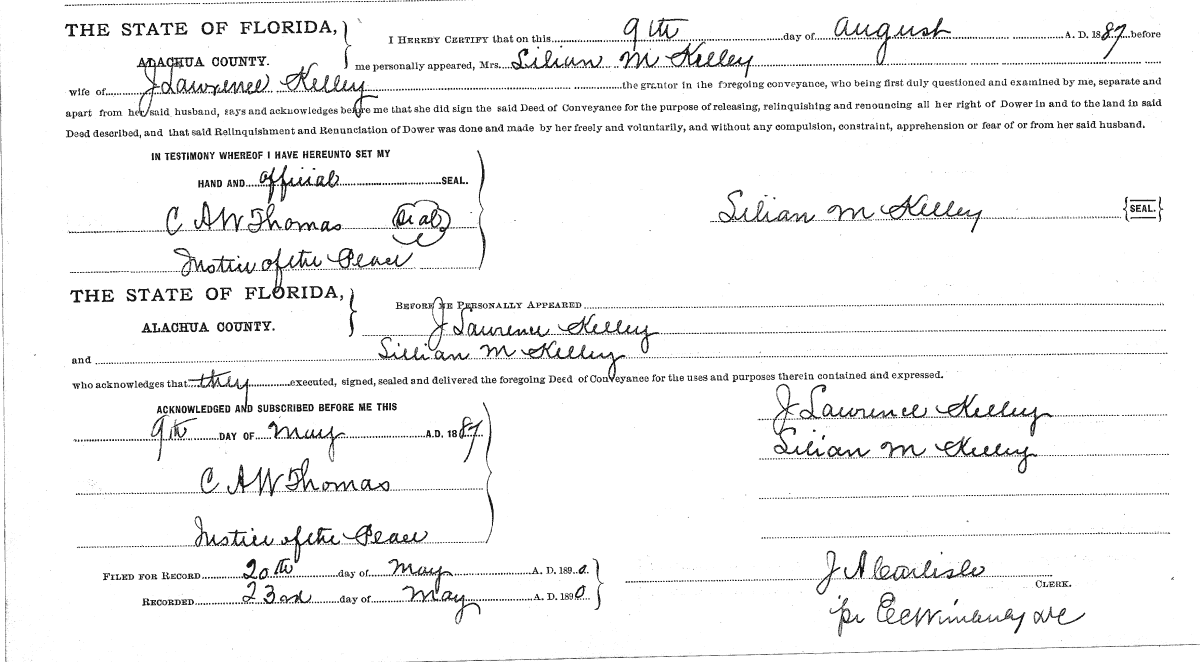 THE STATE OF FLORIDA,
ALACHUA COUNTY.
I HEREBY CERTIFY that on this 9th day of August A. D. 1887 before
me personally appeared, Mrs. Lilian M Kelley
wife of J Lawrence Kelley the grantor in the foregoing conveyance, who being first duly questioned and examined by me, separate and
apart from her said husband, says and acknowledges before me that she did sign the said Deed of Conveyance for the purpose of releasing, relinquishing and renouncing all her right of Dower in and to the land in said
Deed described, and that said Relinquishment and Renunciation of Dower was done and made by her freely and voluntarily, and without any compulsion, constraint, apprehension or fear of or from her said husband.
IN TESTIMONY WHEREOF I HAVE HEREUNTO SET MY
HAND AND official SEAL.
C A W Thomas Seal
Lilian M Kelley {SEAL.}
Justice of the Peace
THE STATE OF FLORIDA,
ALACHUA COUNTY.
BEFORE ME PERSONALLY APPEARED
J Lawrence Kelley
and Lillian M Kelley
who acknowledges that they executed, signed, sealed and delivered the foregoing Deed of Conveyance for the uses and purposes therein contained and expressed.
ACKNOWLEDGED AND SUBSCRIBED BEFORE ME THIS
9th DAY OF May A.D. 1887
J Lawrence Kelley
Lilian M Kelley
C A W Thomas
Justice of the Peace
FILED FOR RECORD 20th day of May A. D. 1890.
RECORDED 23rd day of May A. D. 1890
J A Carlisle
CLERK.
pr